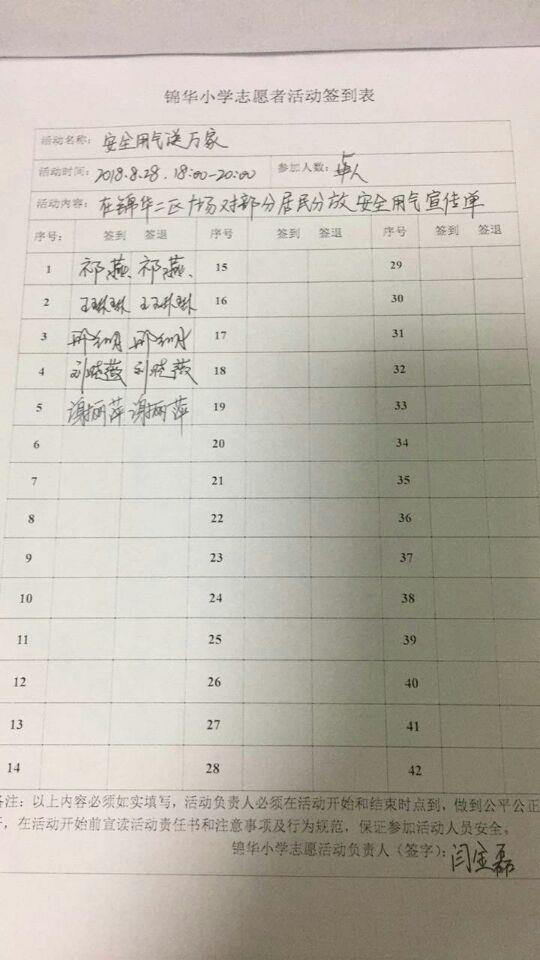 锦华小学志愿者活动签到表
活动名称: 安全用气送万家
活动时间: 2018.8.28. 18:00-20:00 参加人数: 人
活动内容: 在锦华二区广场对部分居民分放安全用气宣传单
序号: 签到 签退 序号 签到 签退 序号 签到 签退
1 祁燕 祁燕 15 29
2 王琳琳 王琳琳 16 30
3 17 31
4 刘晓薇 刘晓薇 18 32
5 谢丽萍 谢丽萍 19 33
6 20 34
7 21 35
8 22 36
9 23 37
10 24 38
11 25 39
12 26 40
13 27 41
14 28 42
备注: 以上内容必须如实填写，活动负责人必须在活动开始和结束时点到，做到公平公正
开，在活动开始前宣读活动责任书和注意事项及行为规范，保证参加活动人员安全。
锦华小学志愿活动负责人（签字）: 闫宝磊